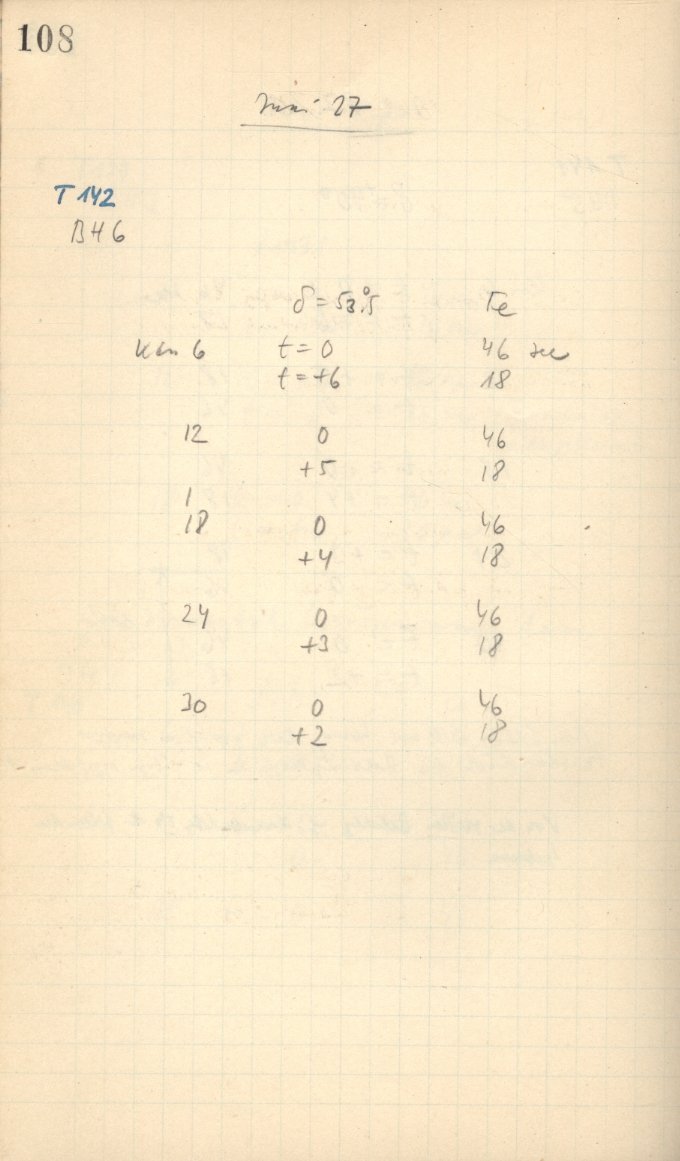 108
27
T 142
BH 6
δ = 53°.5 Te
6 t = 0 46 sec
t = +6 18
12 0 46
+5 18
1
18 0 46
+4 18
24 0 46
+3 18
30 0 46
+2 18